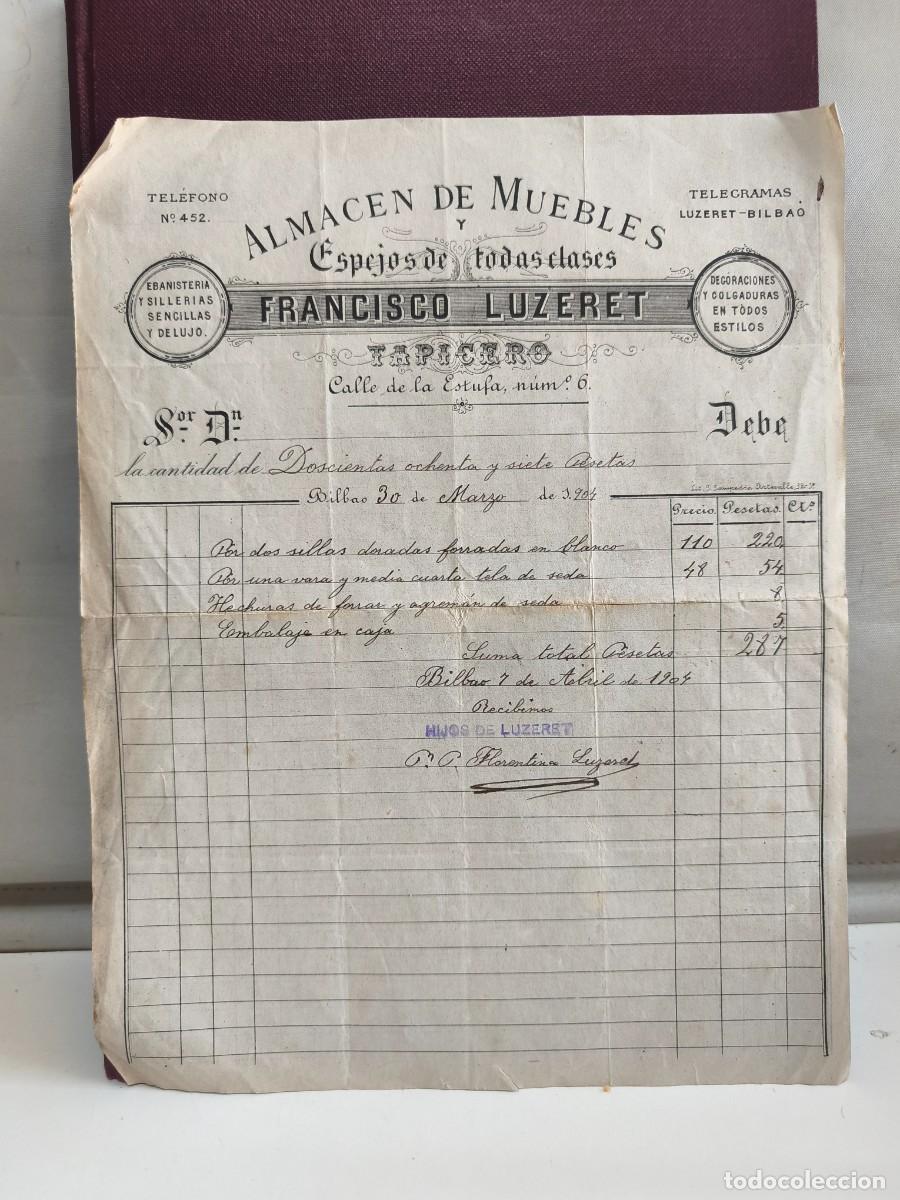 TELÉFONO
Nº 452.
ALMACEN DE MUEBLES
Y
Espejos de todas clases
TELEGRAMAS
LUZERET-BILBAO
EBANISTERIA
Y SILLERIAS
SENCILLAS
Y DE LUJO.
FRANCISCO LUZERET
DECORACIONES
Y COLGADURAS
EN TODOS
ESTILOS
TAPICERO
Calle de la Estufa, númº 6.
Sor Dn Debe
la cantidad de Doscientas ochenta y siete Pesetas
Bilbao 30 de Marzo de 1904
Precio. Pesetas. Cts
Por dos sillas doradas forradas en blanco 110 220
Por una vara y media cuarta tela de seda 48 54
Hechuras de forrar y agremán de seda 8
Embalaje en caja 5
Suma total Pesetas 287
Bilbao 7 de Abril de 1904
Recibimos
HIJOS DE LUZERET
P. P. Florentino Luzeret
todocoleccion